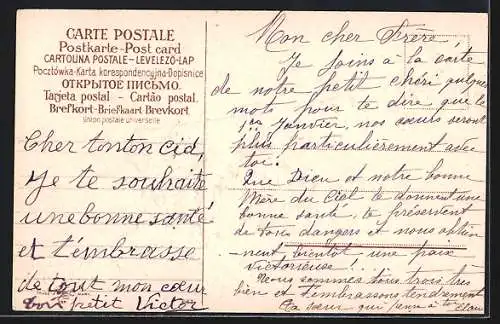 CARTE POSTALE
Postkarte-Post card
CARTOLINA POSTALE-LEVELEZŐ-LAP
Pocztówka-Karta korespondencyjna-Dopisnice
ОТКРЫТОЕ ПИСЬМО.
Tarjeta postal - Cartão postal.
Brefkort-Briefkaart-Brevkort.
Union postale universelle
Cher tonton Cid,
Je te souhaite
une bonne santé
et t'embrasse
de tout mon cœur
ton petit Victor
Mon cher Frère!
Je joins à la carte
de notre petit chéri quelques
mots pour te dire que le
1er Janvier, nos cœurs seront
plus particulièrement avec
toi.
Que Dieu et notre bonne
Mère du Ciel te donnent une
bonne santé, te préservent
de tous dangers et nous obtien
nent bientôt une paix
victorieuse!...
Nous sommes tous trois très
bien et t'embrassons tendrement
Ta sœur qui pense à toi